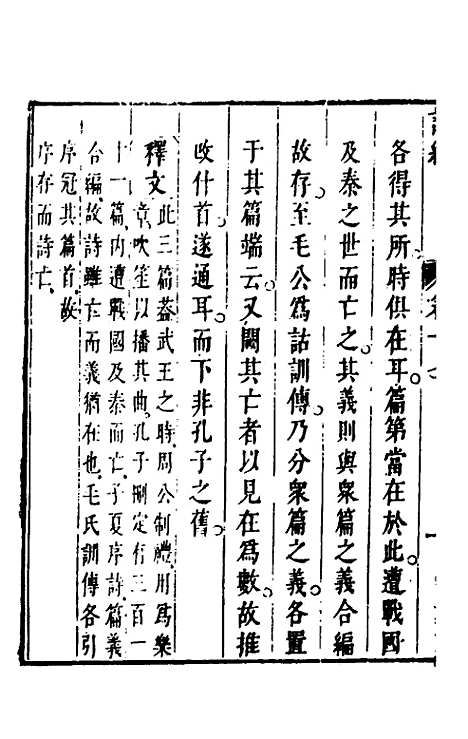 各得其所時俱在耳。篇第當在於此。遭戰國
及秦之世而亡之。其義則與衆篇之義合編
故存。至毛公爲詁訓傳。乃分衆篇之義。各置
于其篇端云。又闕其亡者。以見在爲數。故推
改什首。遂通耳。而下非孔子之舊。
釋文 此三篇葢武王之時、周公制禮、用爲樂
章、吹笙以播其曲、孔子刪定、在三百一
十一篇、内遭戰國及秦而亡、子夏序詩、篇義
合編、故詩雖亡、而義猶在也、毛氏訓傳、各引
序冠其篇首、故
序存而詩亡、